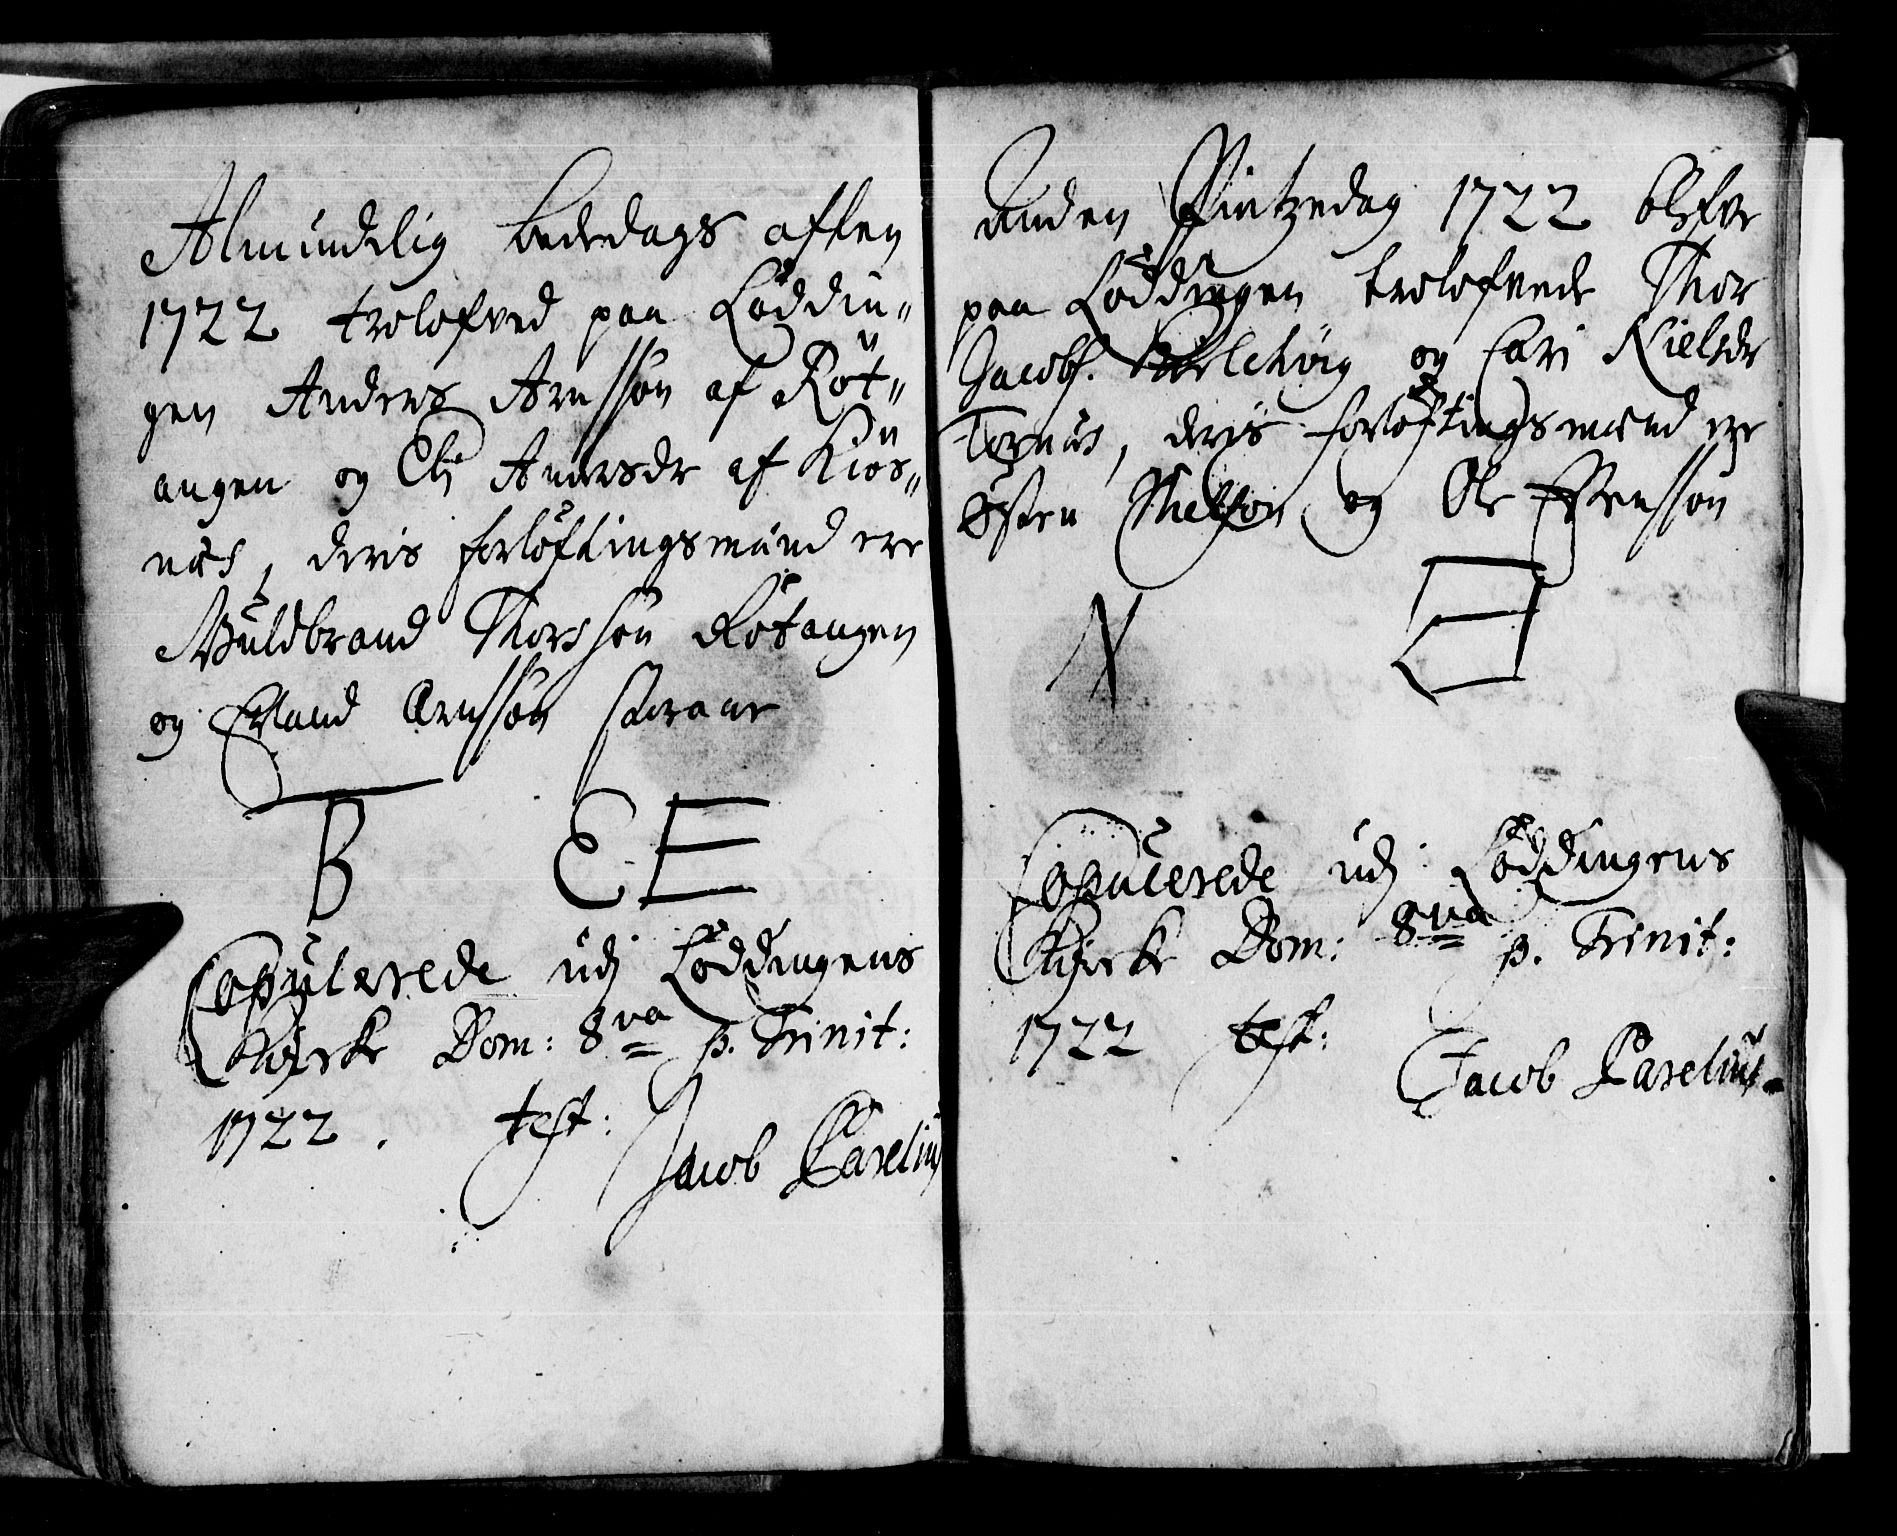 Almindelig bededags afften
1722 trolofved paa Löddin„
gen Anders Arnssøn af Röt„
angen og Eli Andersdr af Kios„
næs, deris forlöftingsmænd ere
Guldbrand Thorssön Rötangen
og Erland Arnssøn
B E E
Copulerede udj Löddingens
Kircke Dom: 8va p. Trinit:
1722. test:
Jacob Parelius
Anden Pintzedag 1722 blefve
paa Löddingen trolofvede Thor
Jacobs. og Cari Nielsdr
deris forlöftingsmænd ere
Østen og Ole
N
Copulerede udj Löddingens
Kircke Dom: 8va p. Trinit:
1722 test:
Jacob Parelius